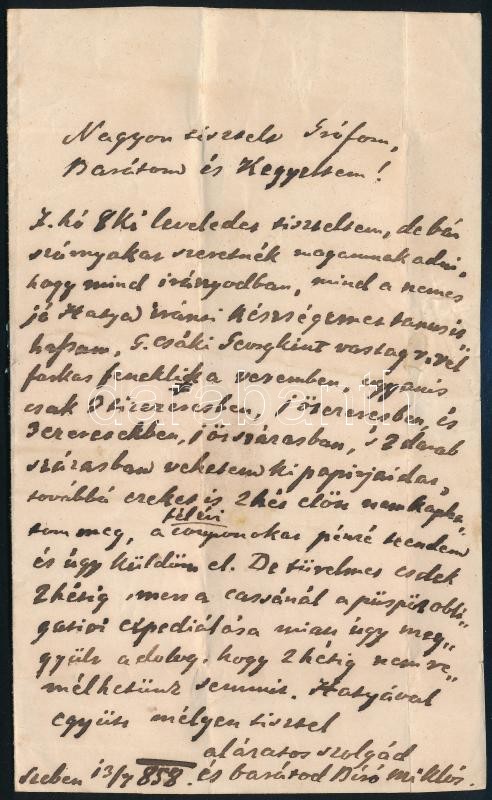 Nagyon tisztelt Grófom,
Barátom és Kegyeltem!
F. hó 8ki leveledet tiszteltem, de bár
szárnyakat szeretnék magamnak adni,
hogy mind irányodban, mind a nemes
jó Hatya iránti készségemet tanusit„
hassam, G. Csáki vastag
farkas a veremben, ugyanis
csak 2 tizezresben, 1 ötezeresben, és
3 ezeresekben, 1 ötszázasban, s 2 darab
százasban vehetem ki papirjaidat,
továbbá ezeket is 2 hét előtt nem kapha„
félévi
tom meg, a couponokat pénzé teendem
és úgy küldöm el. De türelmet esdek
2 hétig mert a cassánál a püspök obli„
gatioi expediálása miatt úgy meg„
gyült a dolog, hogy 2 hétig nem re„
mélhetünk semmit. Hatyával
együtt mélyen tisztel
alázatos szolgád
Szeben 13/7 858. és barátod Biró Miklós.
darabanth